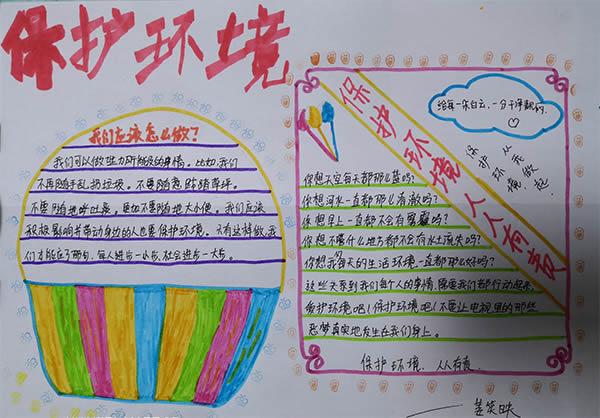 保护环境
我们应该怎么做？
我们可以做些力所能及的事情。比如，我们
不再随手乱扔垃圾，不要随意踩踏草坪。
不要随地呼吐痰，更加不要随地大小便。我们应该
积极影响并带动身边的人也要保护环境。只有这样做，我
们才能应了那句，每人进步一小步，社会进步一大步。
保护环境人人有责
给每一朵白云，一分干净靓的，
保护环境
从我做起
你想天空每天都那么蓝吗？
你想河水一直都那么清澈吗？
你想早上一直都不会有雾霾吗？
你想不管什么地方都不会有水土流失吗？
你想我每天的生活环境一直都那么好吗？
这些关系到我们每个人的事情，需要我们都行动起来，
爱护环境吧！保护环境吧！不要让电视里的那些
恶梦真实地发生在我们身上。
保护环境，人人有责